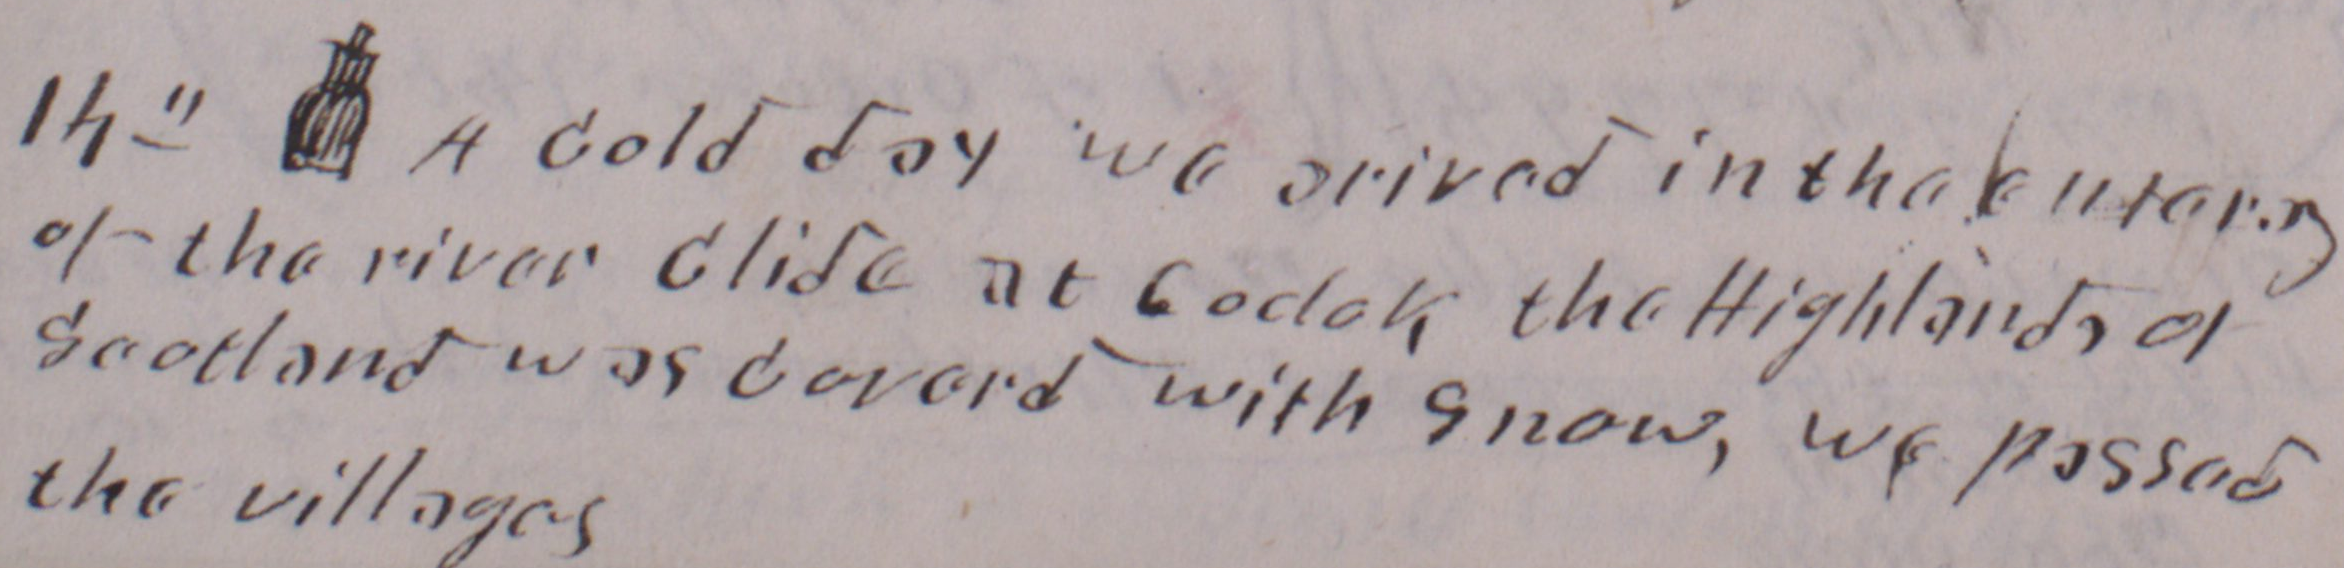 14" A Cold day we arived in the entarny
of the river Clide at 6 oclok, the Highlands of
Scotland was Coverd with Snow, we passed
the villages